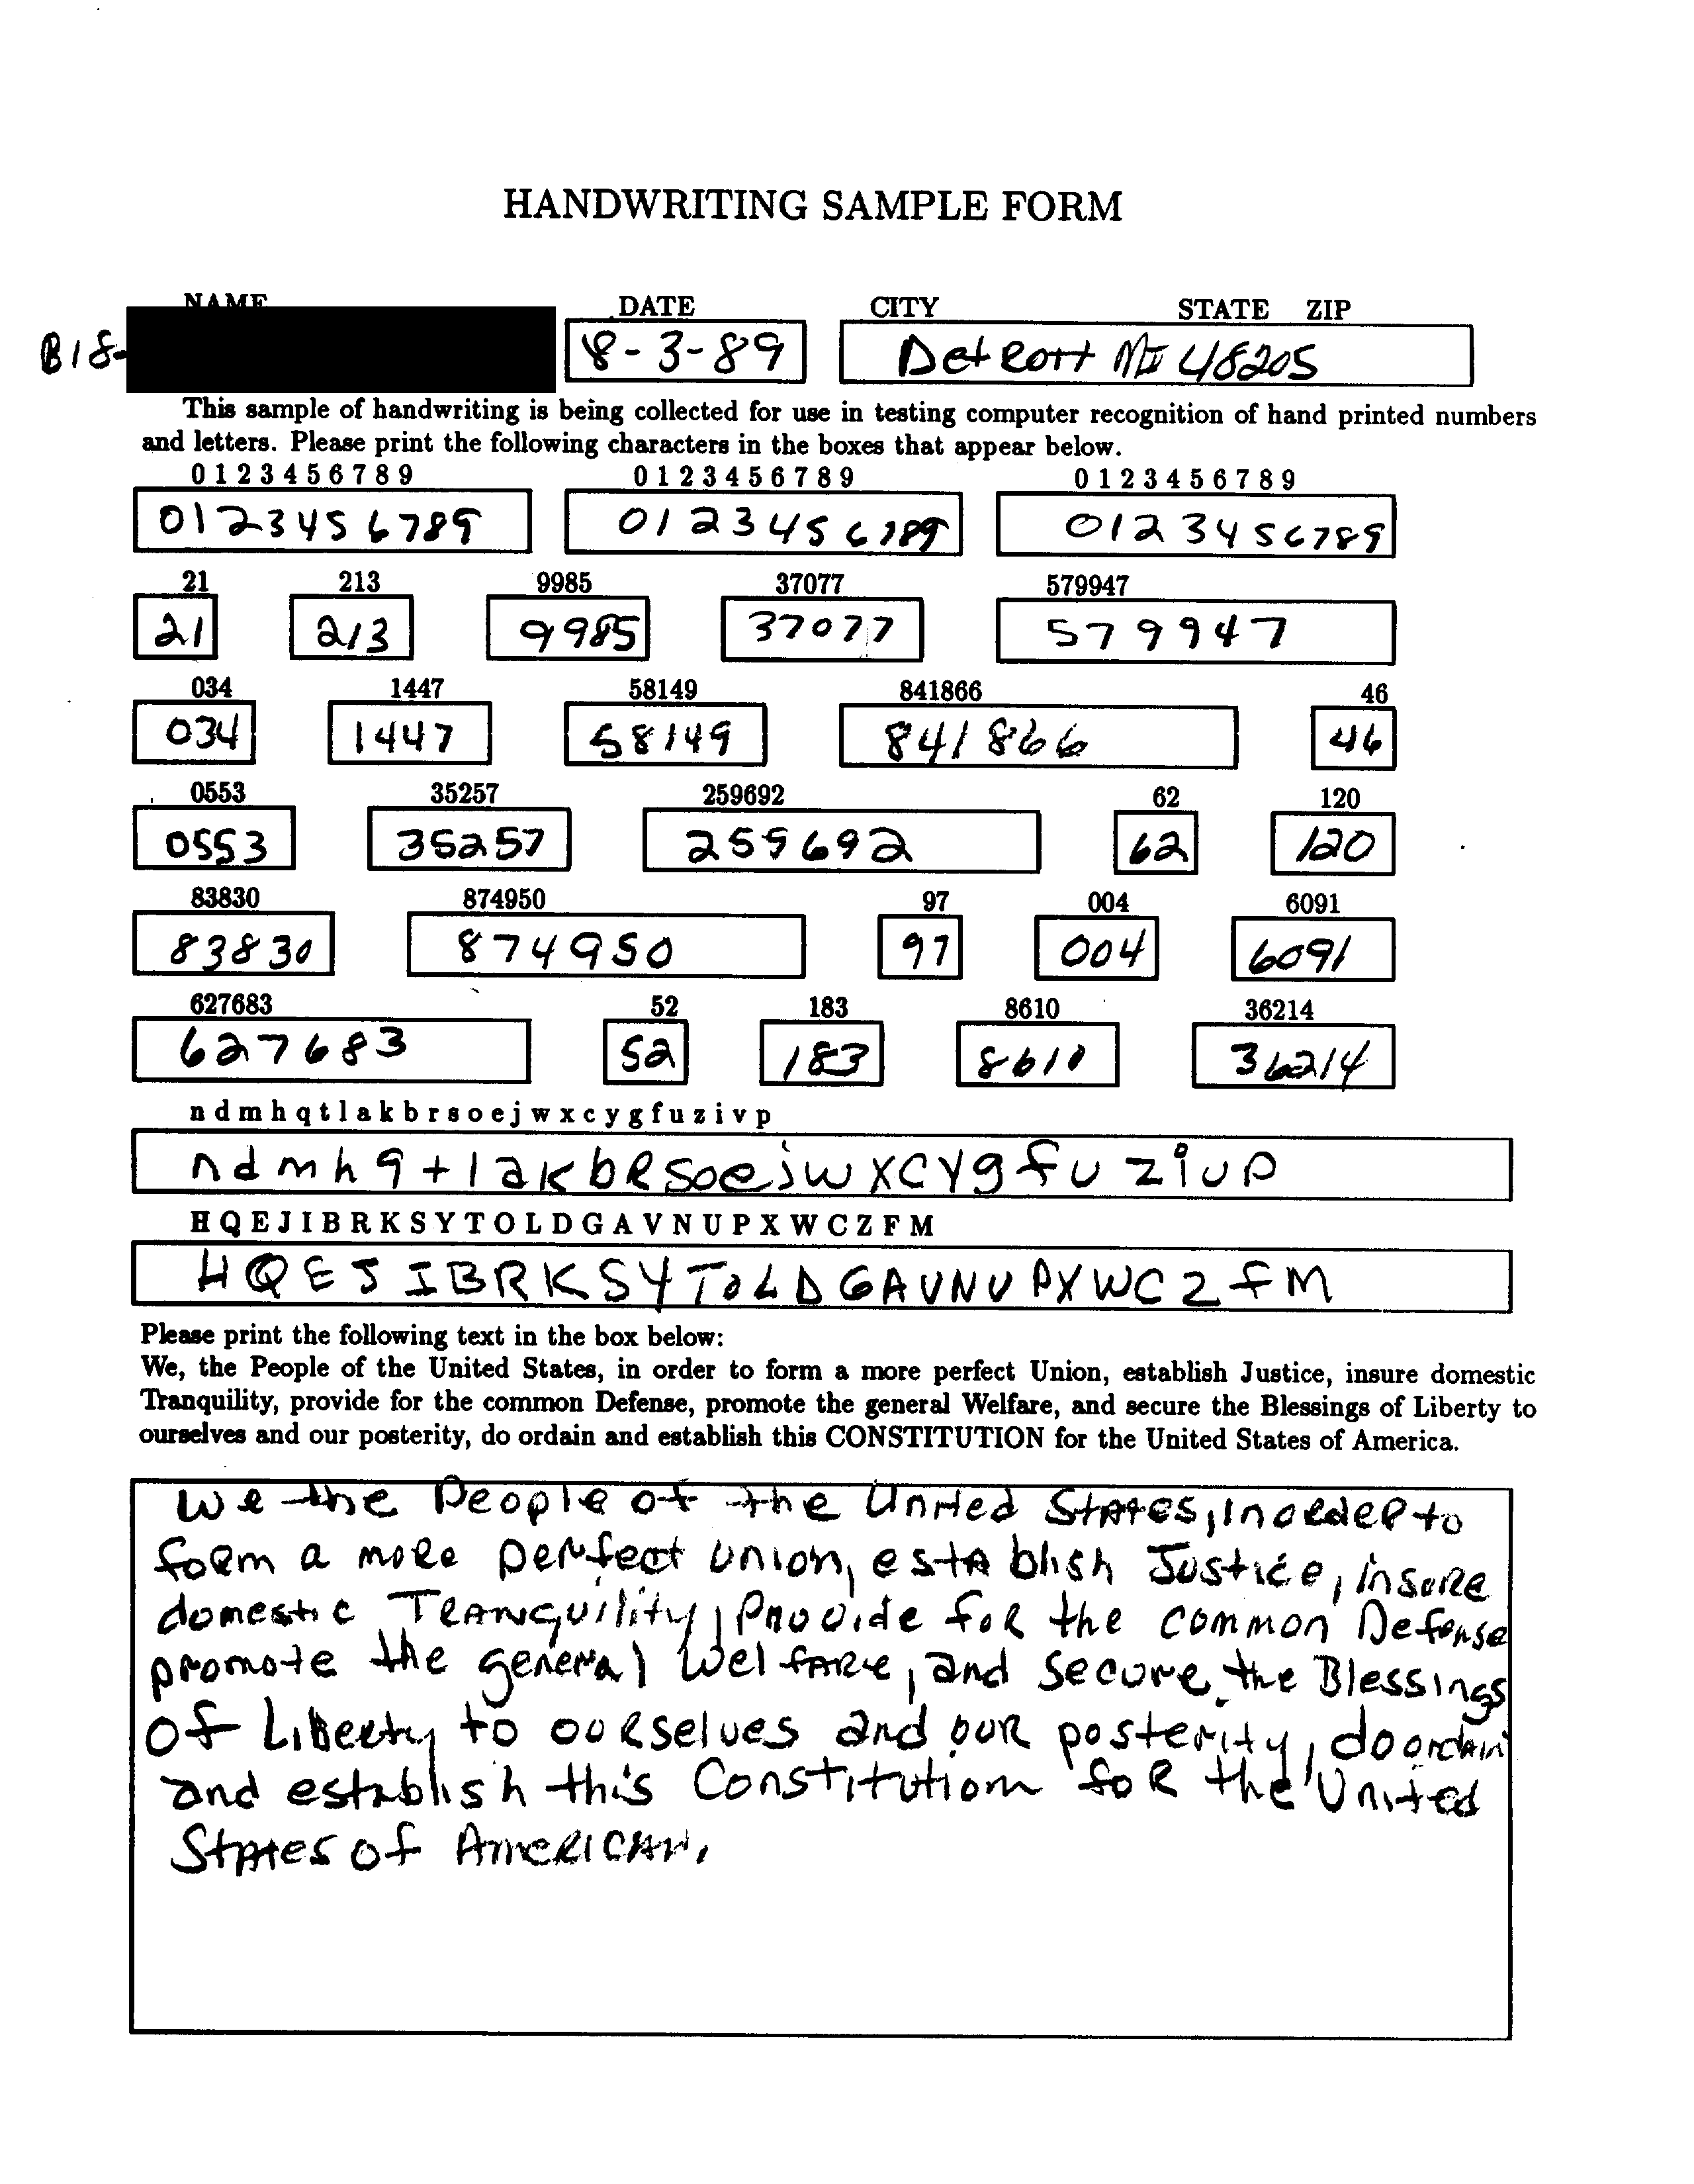 HANDWRITING SAMPLE FORM
NAME DATE CITY STATE ZIP
B18- 8-3-89 Detroit MI 48205
This sample of handwriting is being collected for use in testing computer recognition of hand printed numbers
and letters. Please print the following characters in the boxes that appear below.
0 1 2 3 4 5 6 7 8 9 0 1 2 3 4 5 6 7 8 9 0 1 2 3 4 5 6 7 8 9
0123456789 0123456789 0123456789
21 213 9985 37077 579947
21 213 9985 37077 579947
034 1447 58149 841866 46
034 1447 58149 841866 46
0553 35257 259692 62 120
0553 35257 259692 62 120
83830 874950 97 004 6091
83830 874950 97 004 6091
627683 52 183 8610 36214
627683 52 183 8610 36214
n d m h q t l a k b r s o e j w x c y g f u z i v p
n d m h q t l a k b R s o e j w x c y g f u z i v p
H Q E J I B R K S Y T O L D G A V N U P X W C Z F M
H Q E J I B R K S Y T O L D G A V N U P X W C Z F M
Please print the following text in the box below:
We, the People of the United States, in order to form a more perfect Union, establish Justice, insure domestic
Tranquility, provide for the common Defense, promote the general Welfare, and secure the Blessings of Liberty to
ourselves and our posterity, do ordain and establish this CONSTITUTION for the United States of America.
We the People of the United States, in order to
form a more perfect union, establish Justice, insure
domestic Tranquility, Provide for the common Defense
promote the general Welfare, and secure the Blessings
of Liberty to ourselves and our posterity, do ordain
and establish this Constitution for the United
States of American.